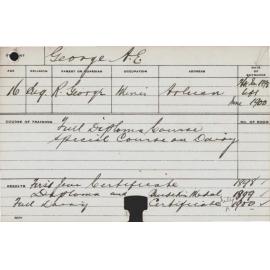 George A.E
AGE RELIGION PARENT OR GUARDIAN OCCUPATION ADDRESS DATE OF ENTRANCE
16 R. George Miner
June 1900
COURSE OF TRAINING NO. OF ROOM
Full Diploma Course
Special Course on Dairy
RESULTS First Year Certificate 1898
Diploma and Medal 1899
Full Dairy Certificate 1900